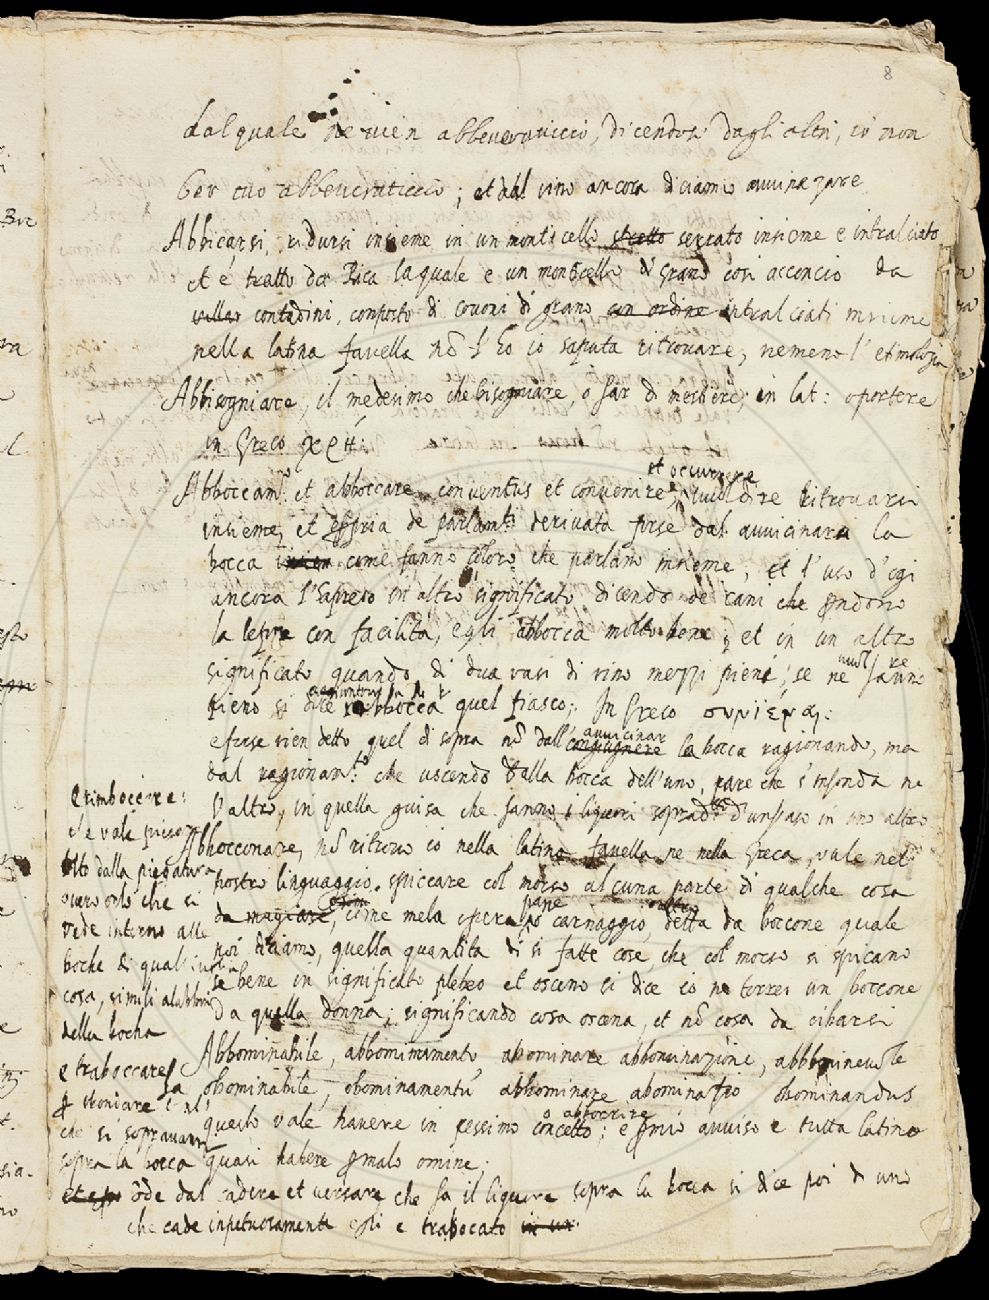 8
dal quale ne vien abbeveraticcio, dicendosi dagli altri, io non
bev tuo abbeveraticcio; et dal vino ancora diciamo avvinazare
Abbicarsi, ridursi insieme in un monticello stretto serrato insieme e intralciato
et é tratto da Bica laquale e un monticello di grano cosi acconcio da
villar contadini, composto di covoni di grano con ordine intralciati insieme
nella latina favella nõ l'ho io saputa ritrovare, nemeno l'etimologia
Abbisogniare, il medesimo che bisogniare, o far di mestiere; in lat: oportere
in Greco χρή:
Abboccamto et abboccare conventus et convenire, et occurrere vuol dire ritrovarsi
insieme, et ꝓpria de parlamti derivata forse dal avvicinarsi la
bocca come fanno coloro che parlano insieme, et l'uso d'ogi
ancora l'ha preso in altro significato dicendo de cani che prendono
la lepre con facilita, egli abbocca molto bene; et in un altro
significato quando di dua vasi di vino mezzi pieni, se ne vuol fare uno
pieno si dice abbocca quel fiasco; In Greco
e forse vien detto quel di sopra nõ dall' congiugnere avvicinar la bocca ragionando, ma
dal ragionamto che uscendo dalla bocca dell'uno, pare che s'infonda ne
l'altro, in quella guisa che fanno i liquori sopradti d'un vaso in uno altro
Abbocconare, nõ ritrovo io nella latina favella ne nella Greca, vale nel
nostro linguaggio spiccare col morso alcuna parte di qualche cosa
da magiare, come mela pera pane o carnaggio, detta da boccone quale
noi diciamo, quella quantita di si fatte cose, che col morso si spicano
se bene in significato plebeo et osceno si dice io ne torrei un boccone
Da quella donna; significando cosa oscena, et nõ cosa da cibarsi
Abbominabile, abbominamento abominare abbominazione, abbominevole
abominabile, abominamentu abhominare abominatio abominandus
questo vale havere in pessimo concetto o abborrire; e ꝓ mio avviso e tutta latina
quasi habere ꝓ malo omine;
e rimboccare:
che vale
dalla piegatura
overo orlo che si
vede intorno alle
boche di
cosa, simili alabbri
della bocha
e traboccare
che si
sopra la bocca
ode dal cadere et versare che fa il liquore sopra la bocca si dice poi di uno
che cade inpetuosamente egli e trabocato